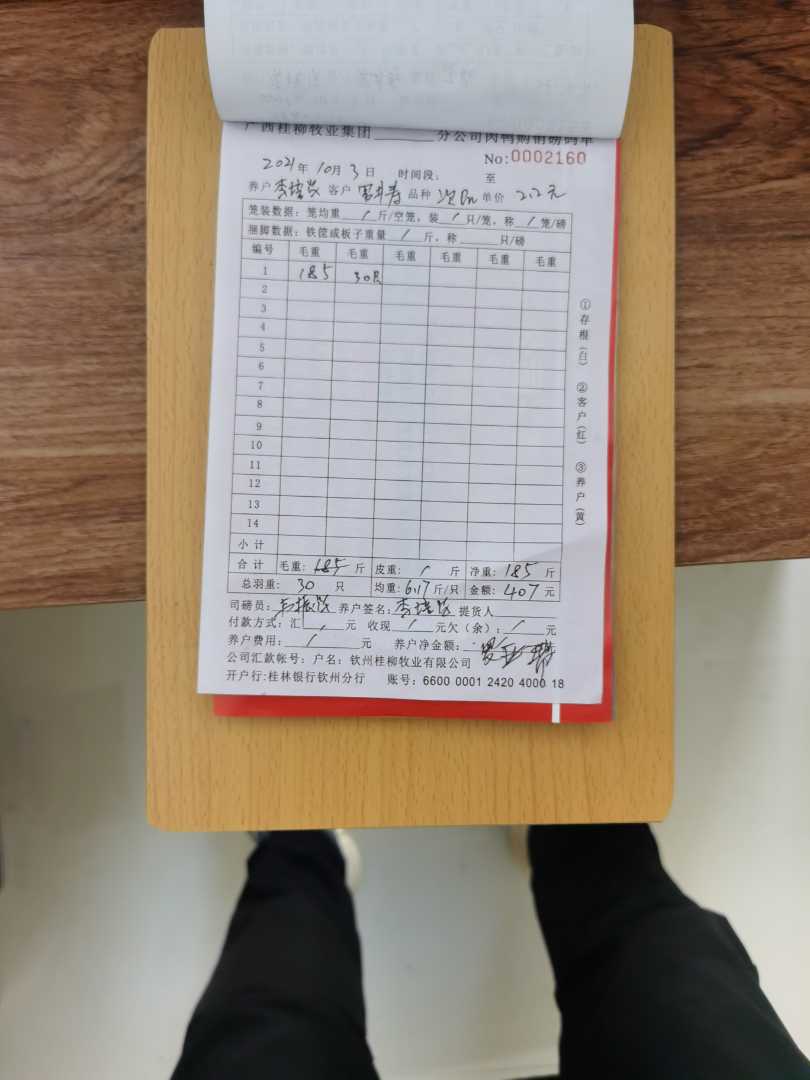 广西桂柳牧业集团______分公司肉鸭购销磅码单
No:0002160
2021年 10月 3日 时间段: 至
养户 李 客户 罗 品种 单价 2.2元
笼装数据: 笼均重 / 斤/空笼, 装 / 只/笼, 称 / 笼/磅
捆脚数据: 铁筐或板子重量 / 斤, 称______只/磅
编号 毛重 毛重 毛重 毛重 毛重 毛重
1 185 30只
2
3
4
5
6
7
8
9
10
11
12
13
14
小计
合计 毛重: 185 斤 皮重: / 斤 净重: 185 斤
总羽重: 30 只 均重: 6.17 斤/只 金额: 407 元
司磅员: 养户签名: 李 提货人
付款方式: 汇 / 元 收现 / 元欠(余): / 元
养户费用: / 元 养户净金额:
公司汇款帐号: 户名: 钦州桂柳牧业有限公司
开户行: 桂林银行钦州分行 账号: 6600 0001 2420 4000 18
①存根(白) ②客户(红) ③养户(黄)